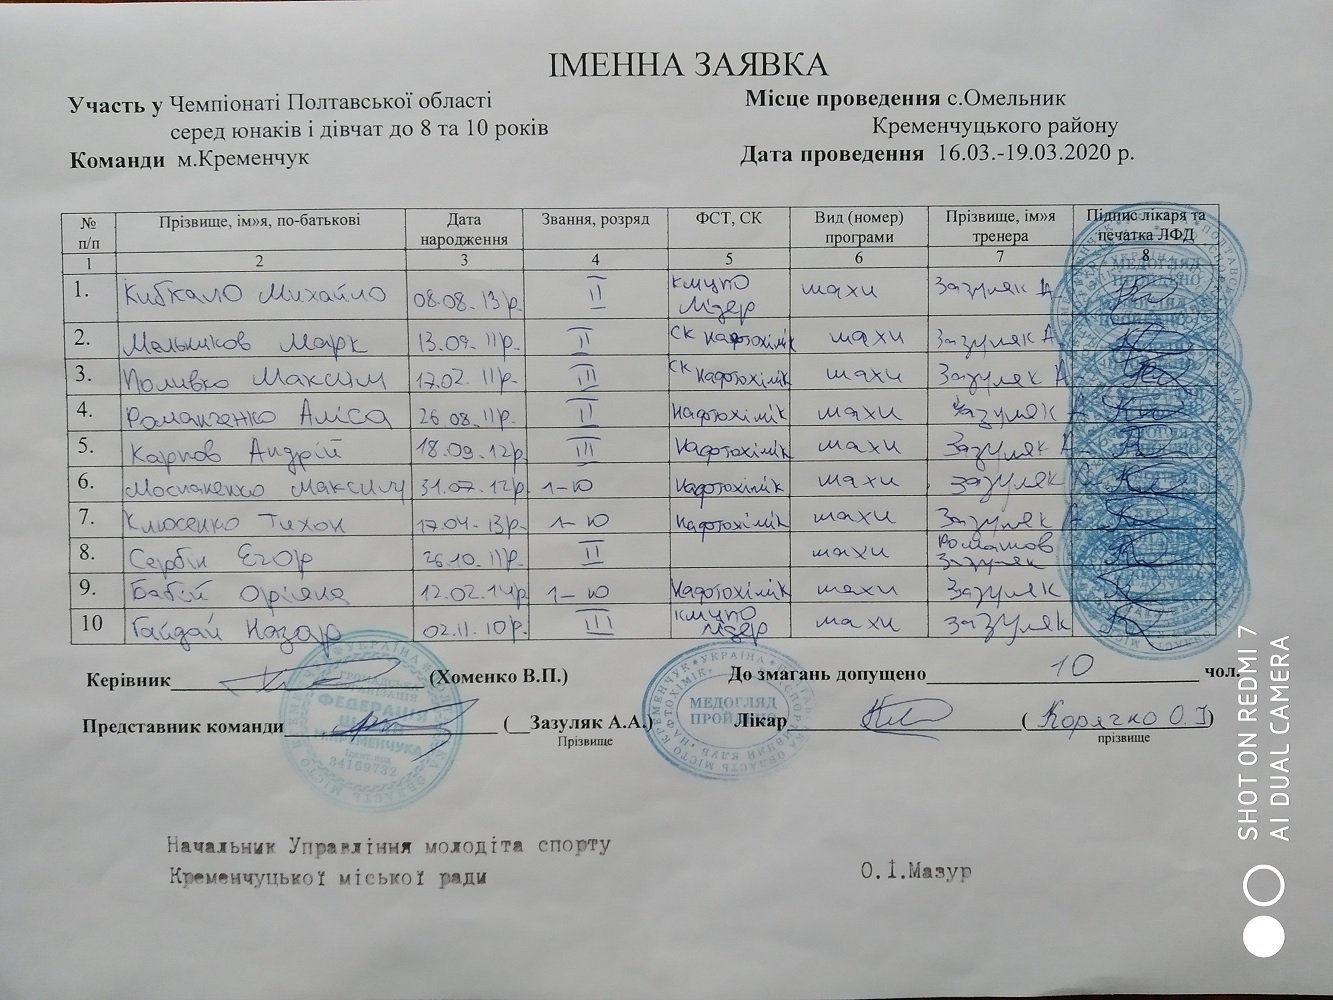 ІМЕННА ЗАЯВКА
Участь у Чемпіонаті Полтавської області
серед юнаків і дівчат до 8 та 10 років
Команди м.Кременчук
Місце проведення с.Омельник
Кременчуцького району
Дата проведення 16.03.-19.03.2020 р.
№ п/п Прізвище, ім»я, по-батькові Дата народження Звання, розряд ФСТ, СК Вид (номер) програми Прізвище, ім»я тренера Підпис лікаря та печатка ЛФД
1 2 3 4 5 6 7 8
1. Кибкало Михайло 08.08.13р. II КМЦПО Лідер шахи Зазуляк А.
2. Мельников Марк 13.09.11р. II СК Нафтохімік шахи Зазуляк А.
3. Поливко Максим 17.02.11р. III СК Нафтохімік шахи Зазуляк А.
4. Романченко Аліса 26.08.11р. II Нафтохімік шахи Зазуляк А.
5. Карпов Андрій 18.09.12р. III Нафтохімік шахи Зазуляк А.
6. Моспаненко Максим 31.07.12р. 1-Ю Нафтохімік шахи Зазуляк
7. Клюсенко Тихон 17.04.13р. 1-Ю Нафтохімік шахи Зазуляк А
8. Сербін Єгор 26.10.11р. II шахи Ромашов Зазуляк
9. Бабій Оріяна 12.02.14р. 1-Ю Нафтохімік шахи Зазуляк
10 Гайдай Назар 02.11.10р. III КМЦПО Лідер шахи Зазуляк
Керівник (Хоменко В.П.) До змагань допущено 10 чол.
Представник команди (__Зазуляк А.А.) Лікар (Корячко О.І)
Прізвище прізвище
ФЕДЕРАЦІЯ
М.КРЕМЕНЧУКА
34169732
МЕДОГЛЯД
ПРОЙДЕНО
Начальник Управління молодіта спорту
Кременчуцької міської ради О.І.Мазур
SHOT ON REDMI 7
AI DUAL CAMERA